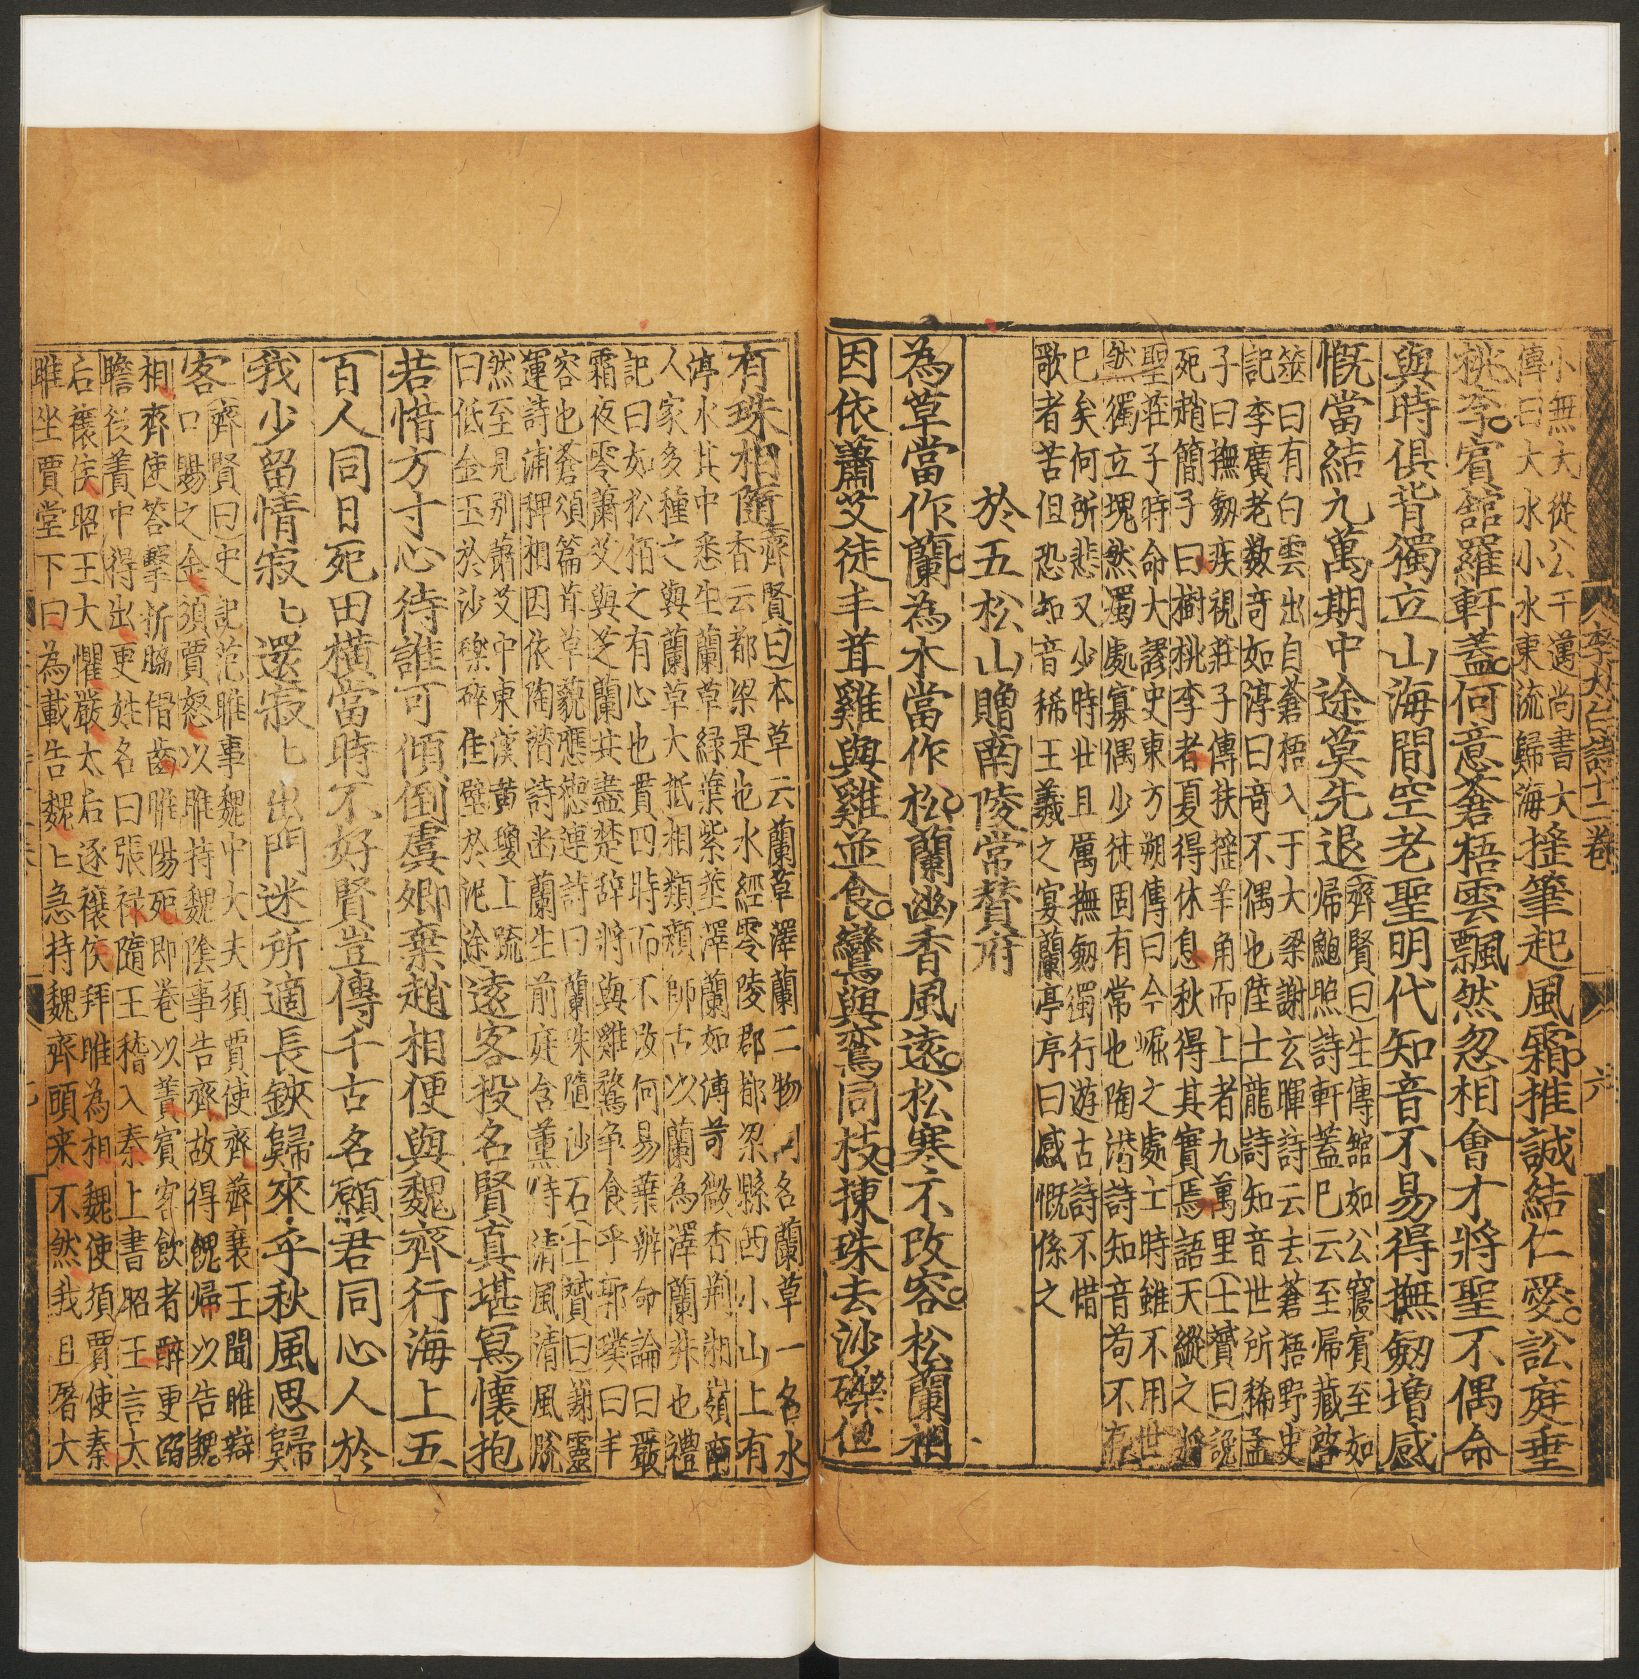 小無大從公于邁尚書大
傳曰大水小水東流歸海
搖筆起風霜推誠結仁愛訟庭垂
桃李賓舘羅軒蓋何意蒼梧雲飄然忽相會才將聖不偶命
與時俱背獨立山海間空老聖明代知音不易得撫劒增感
慨當結九萬期中途莫先退
齊賢曰生傳舘如公寢賓至如
歸鮑照詩軒蓋已云至歸藏啓
筮曰有白雲出自蒼梧入于大梁謝玄暉詩云去蒼梧野史
記李廣老數竒如淳曰竒不偶也陸士龍詩知音世所稀孟
子曰撫劒疾視莊子傳扶搖羊角而上者九萬里士贇曰說
死趙簡子曰樹桃李者夏得休息秋得其實焉語天縱之將
聖莊子時命大謬史東方朔傳曰今𭀒之處士時雖不用世
然獨立塊然獨處寡偶少徒固有常也陶潜詩知音苟不存
已矣何所悲又少時壮且厲撫劒獨行遊古詩不惜
歌者苦但恐知音稀王羲之宴蘭亭序曰感慨係之
於五松山贈南陵常賛府
為草當作蘭為木當作松蘭幽香風遠松寒不改容松蘭相
因依蕭艾徒丰茸雞與雞並食鸞與鸞同枝揀珠去沙礫但
有珠相隨
齊賢曰本草云蘭草澤蘭二物同名蘭草一名水
香云都梁是也水經零陵郡都梁縣西小山上有
渟水其中悉生蘭草緑葉紫莖澤蘭如薄苛微香荆湘嶺南
人家多種之與蘭草大抵相類顔師古以蘭為澤蘭非也禮
記曰如松栢之有心也貫四時而不改何易葉辨命論曰嚴
霜夜零蕭艾與芝蘭共盡楚辞將與雞鶩争食乎郭璞曰丰
容也蒼頡篇茸草藐應德連詩曰蘭珠隨沙石士贇曰謝靈
運詩浦稗相因依陶潜詩幽蘭生前庭含薫待清風清風脫
然至見别蕭艾中東漢黄瓊上疏
曰低金玉於沙礫碎隹璧於泥涂
遠客投名賢真堪寫懷抱
若惜方寸心待誰可傾倒虞卿棄趙相便與魏齊行海上五
百人同日死田横當時不好賢豈傳千古名願君同心人於
我少留情寂〻還寂〻出門迷所適長鋏歸來乎秋風思歸
客
齊賢曰史記范睢事魏中大夫須賈使齊齊襄王聞睢辯
口賜之金須賈怒以睢持魏隂事告齊故得餽歸以告魏
相齊使笞擊折脇㑺齒睢陽死即卷以簀賓客飲者醉更溺
睢從簀中得出更姓名曰張禄隨王稽入秦上書昭王言太
后穰侯昭王大懼嚴太后逐穰侯拜睢為相魏使須賈使秦
睢坐賈堂下曰為載告魏〻急持魏齊頭来不然我且屠大